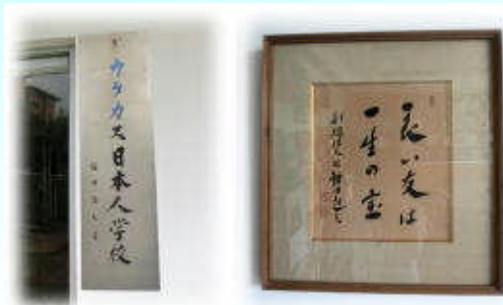 カラカス日本人学校
良い友は
一生の宝